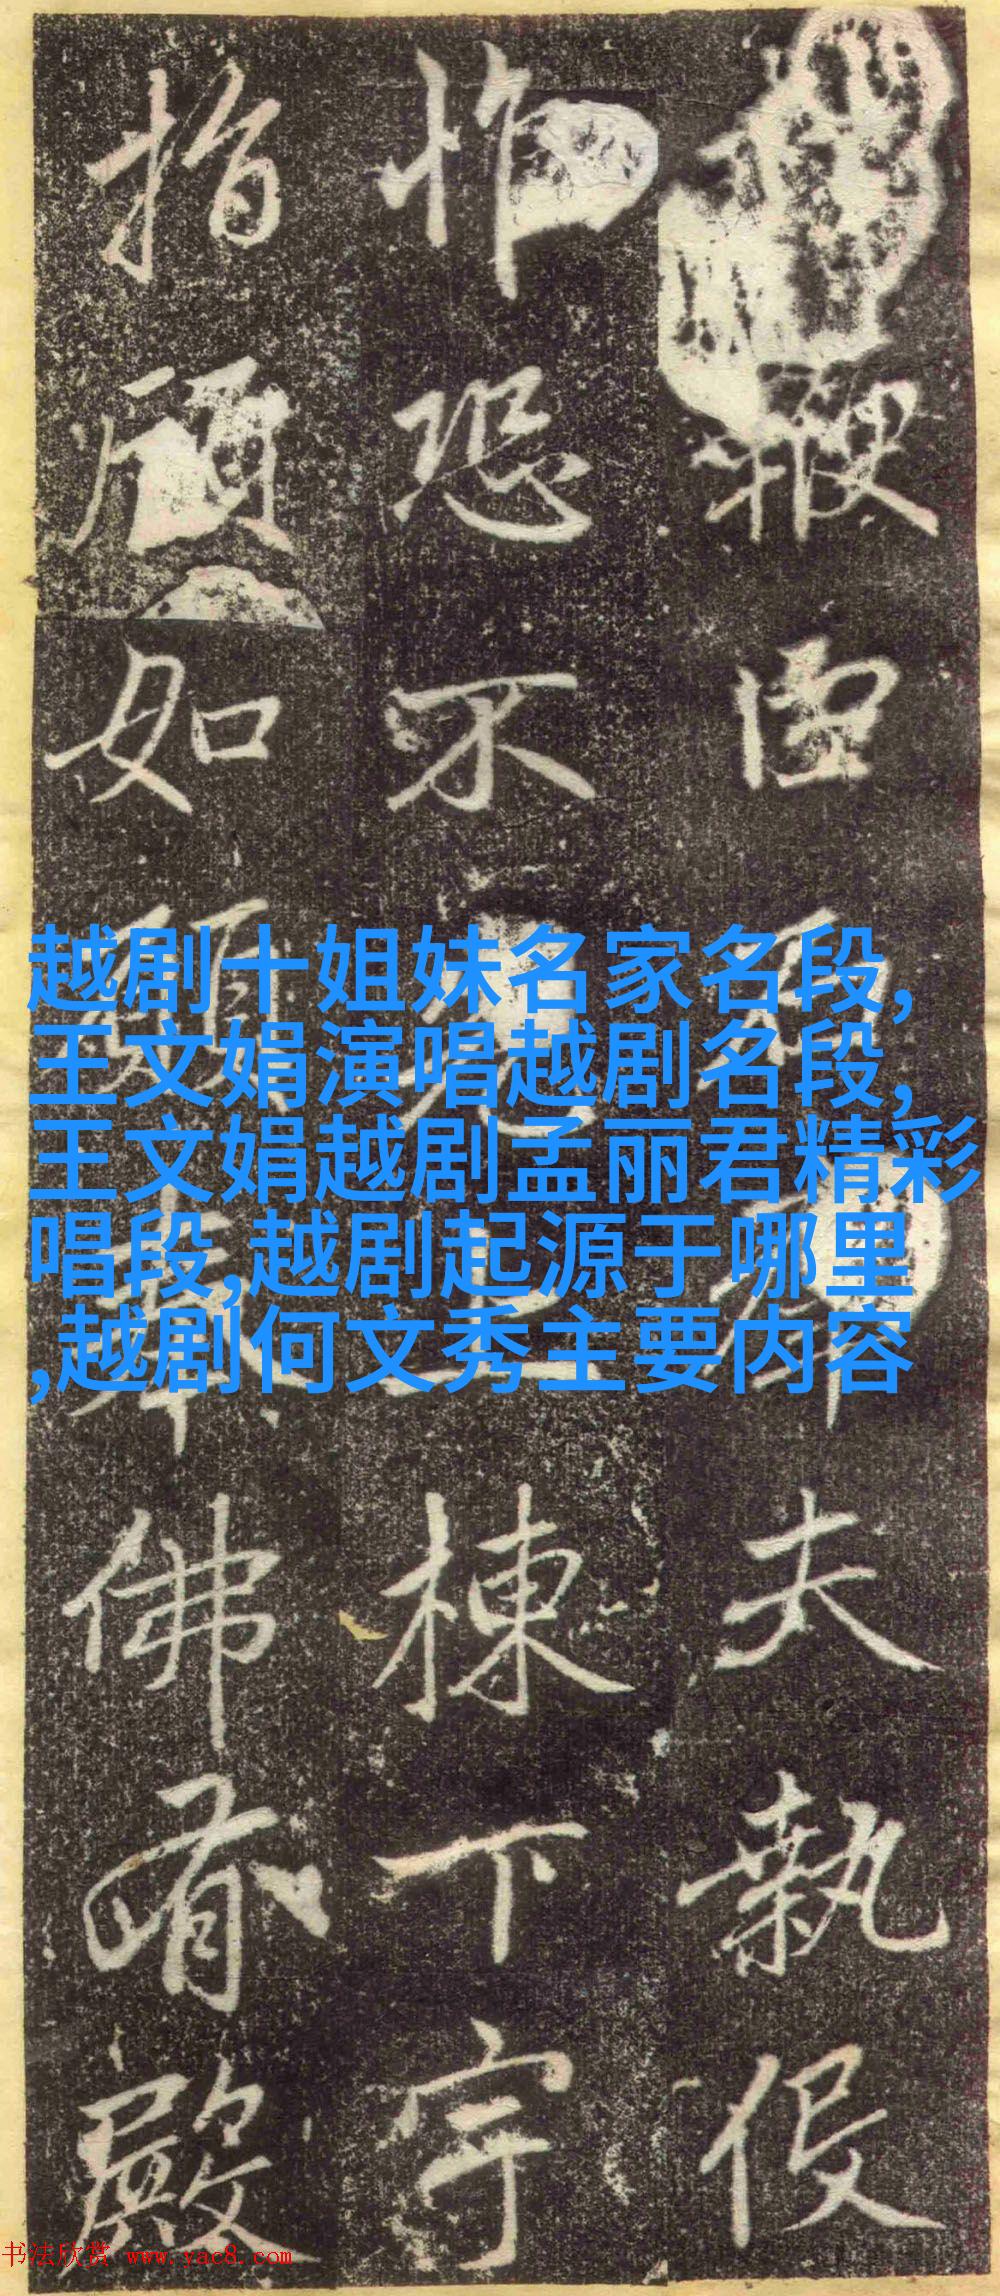 鞭虚夫執役
怍恐不上棟下宇
指顧如願佛有殿
越剧十姐妹名家名段,
王文娟演唱越剧名段,
王文娟越剧孟丽君精彩
唱段,越剧起源于哪里
,越剧何文秀主要内容
书法欣赏 www.yac8.com